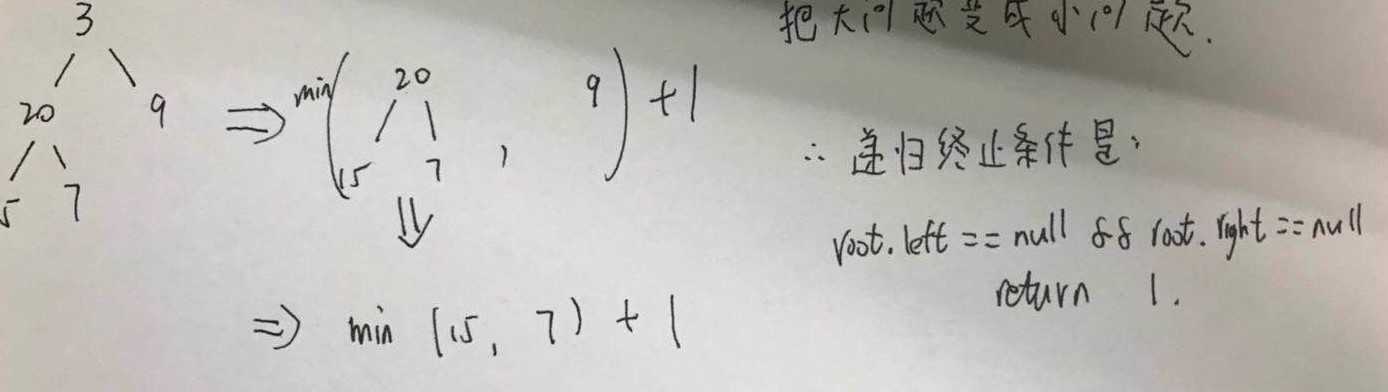 把大问题变成小问题.
3
20 9
5 7
⇒ min( 20 , 9 ) + 1
15 7
⇓
⇒ min (15, 7) + 1
∴ 递归终止条件是:
root.left == null && root.right == null
return 1.